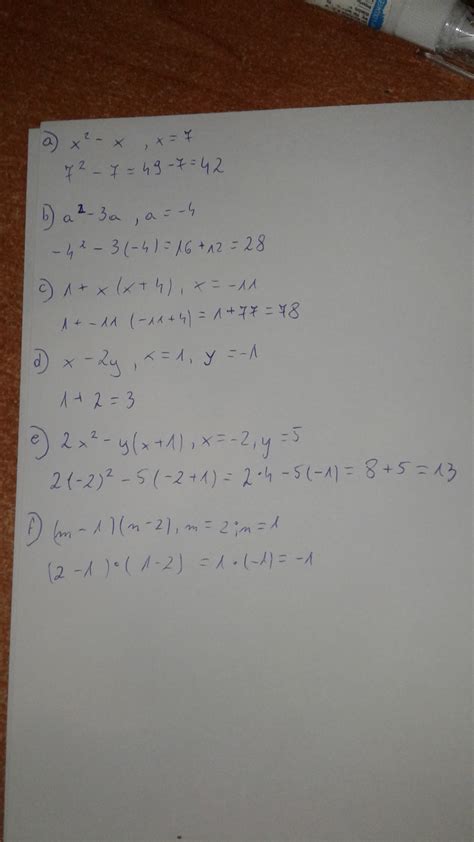 a) x² - x , x = 7
7² - 7 = 49 - 7 = 42
b) a² - 3a , a = -4
-4² - 3(-4) = 16 + 12 = 28
c) 1 + x(x+4) , x = -11
1 + -11 (-11+4) = 1 + 77 = 78
d) x - 2y , x = 1, y = -1
1 + 2 = 3
e) 2x² - y(x+1) , x = -2, y = 5
2(-2)² - 5(-2+1) = 2·4 - 5(-1) = 8 + 5 = 13
f) (m - 1)(n - 2) , m = 2; n = 1
(2 - 1)·(1 - 2) = 1·(-1) = -1